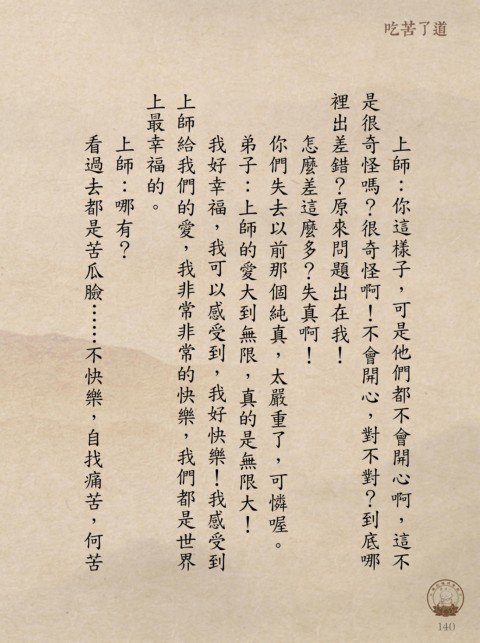 吃苦了道
上師：你這樣子，可是他們都不會開心啊，這不
是很奇怪嗎？很奇怪啊！不會開心，對不對？到底哪
裡出差錯？原來問題出在我！
怎麼差這麼多？失真啊！
你們失去以前那個純真，太嚴重了，可憐喔。
弟子：上師的愛大到無限，真的是無限大！
我好幸福，我可以感受到，我好快樂！我感受到
上師給我們的愛，我非常非常的快樂，我們都是世界
上最幸福的。
上師：哪有？
看過去都是苦瓜臉……不快樂，自找痛苦，何苦
140